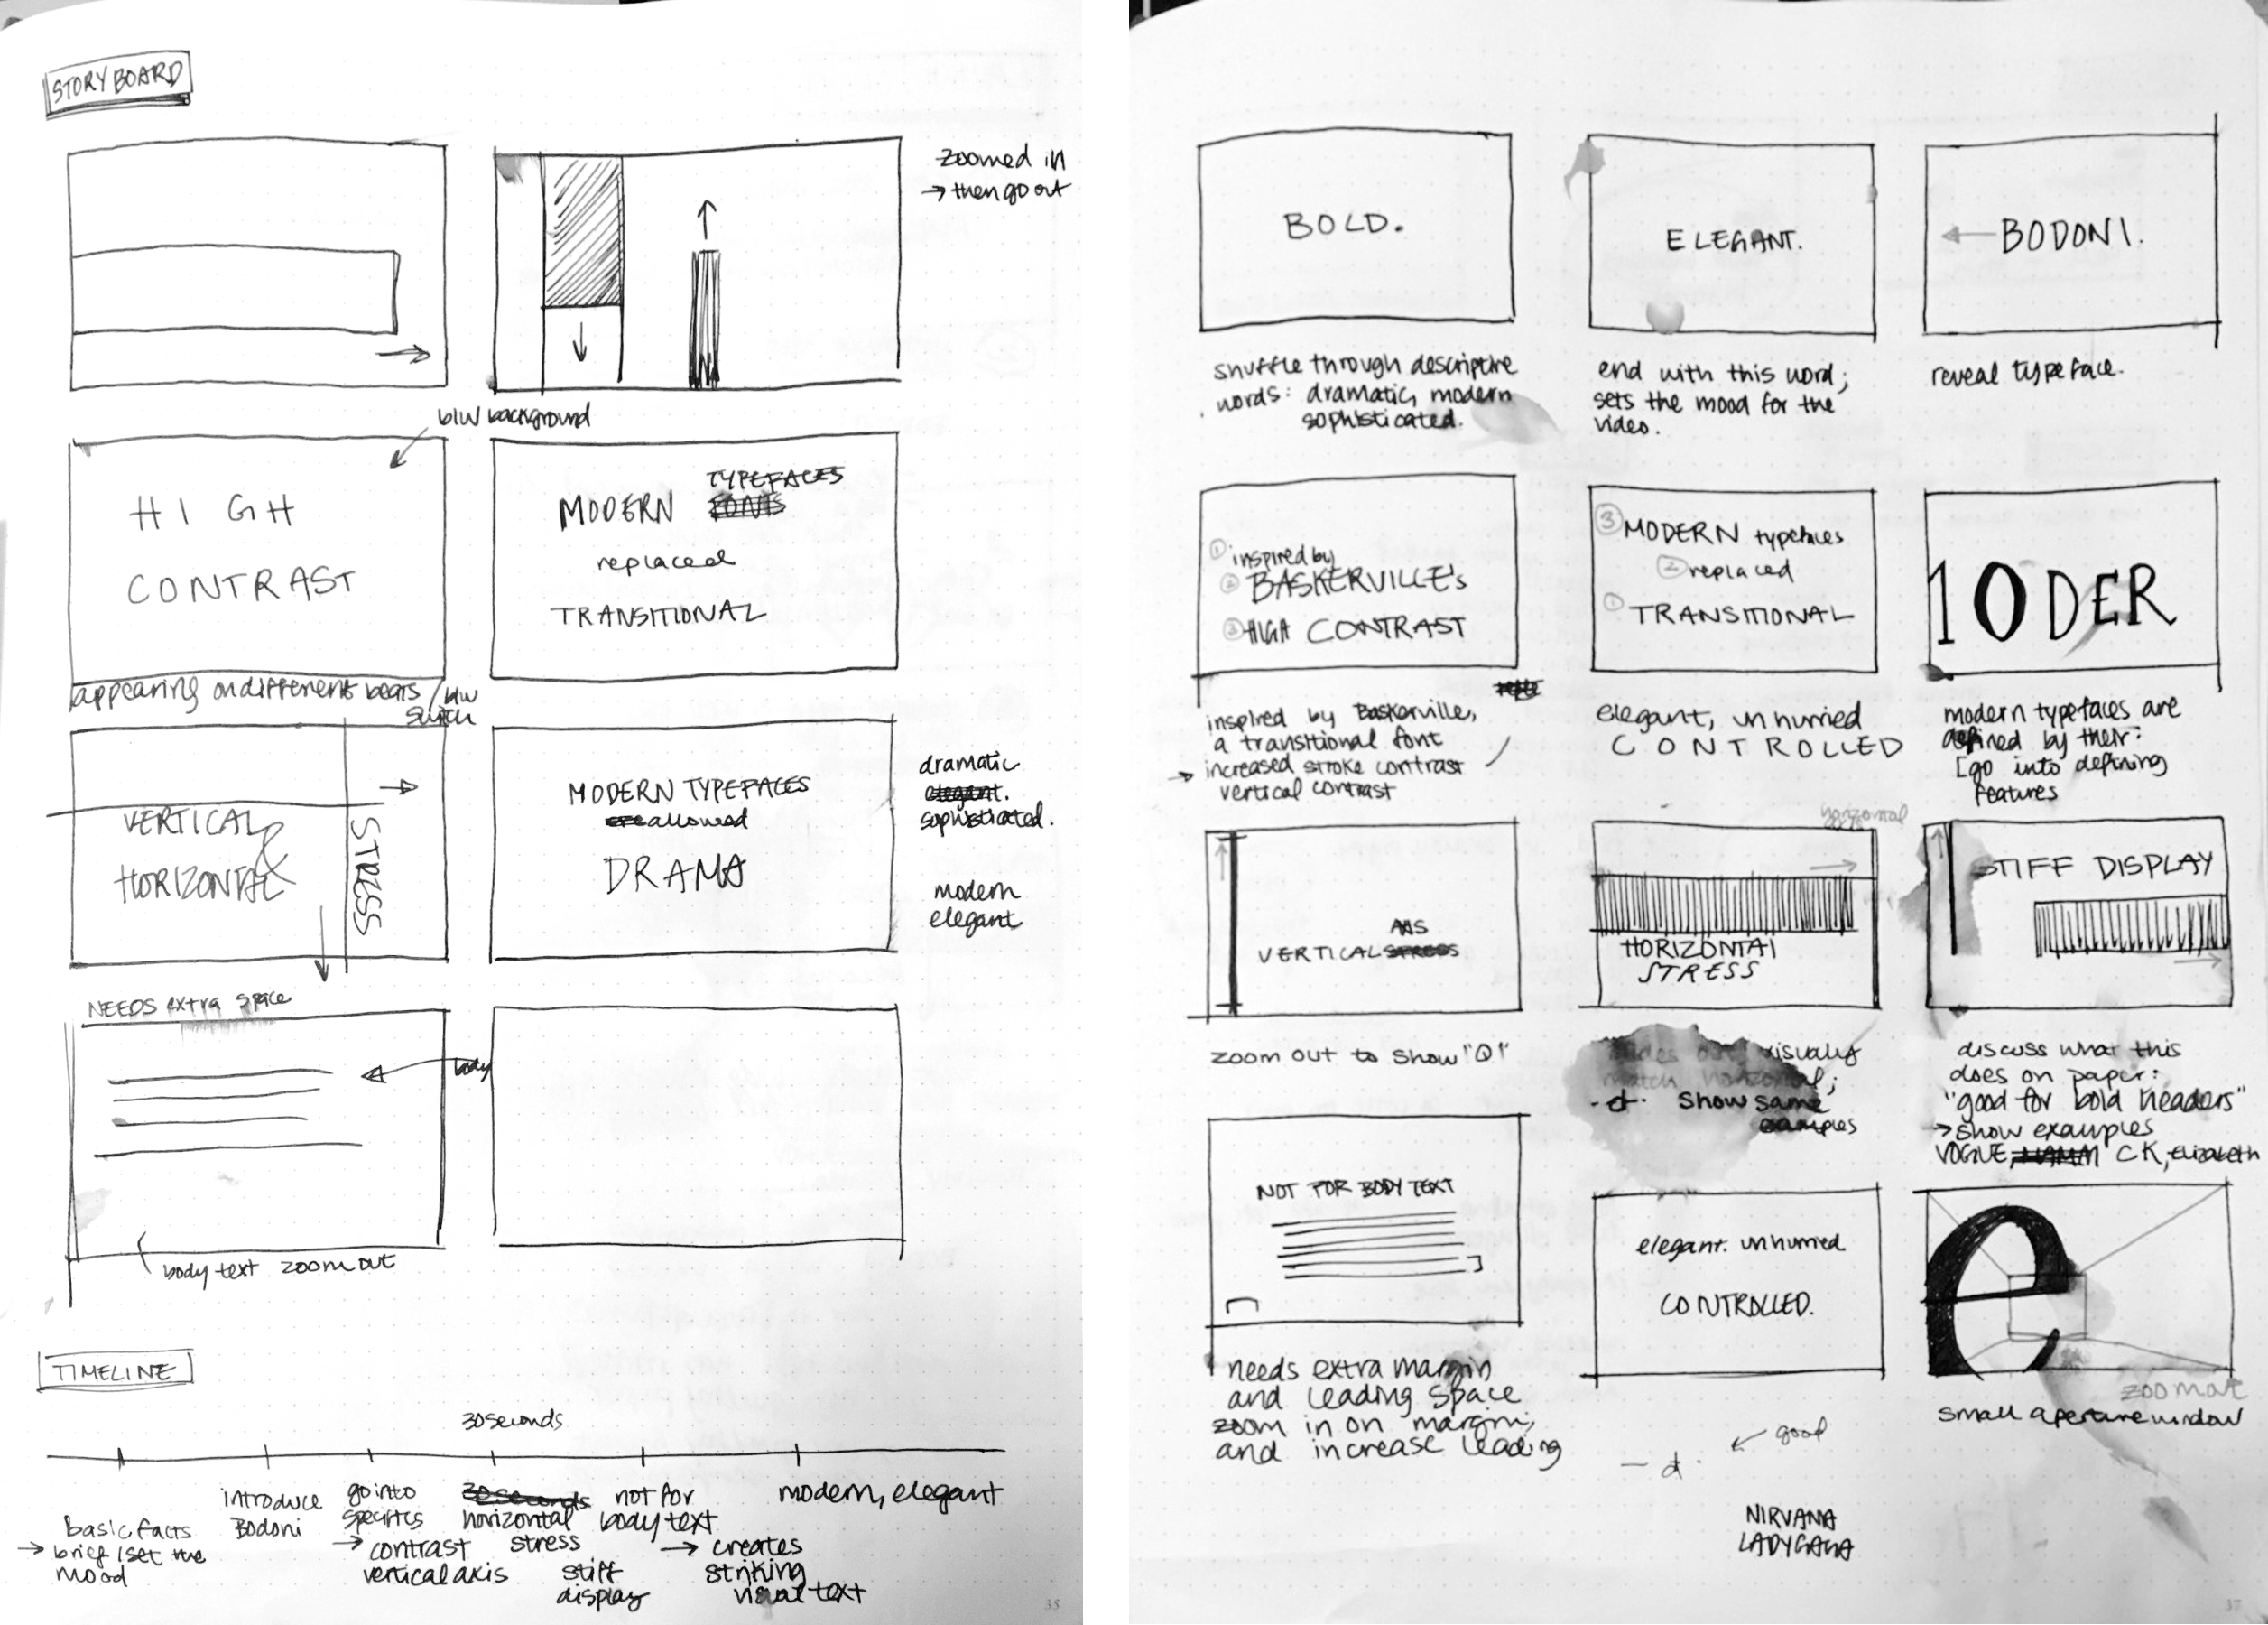 STORYBOARD
zoomed in
→ then go out
b/w background
HIGH
CONTRAST
TYPEFACES
MODERN FONTS
replaced
TRANSITIONAL
appearing on different beats / b/w
switch
VERTICAL &
HORIZONTAL
STRESS
MODERN TYPEFACES
allowed
DRAMA
dramatic
elegant.
sophisticated.
modern
elegant
NEEDS extra space
body
body text zoom out
TIMELINE
30 seconds
basic facts
→ brief / set the
mood
introduce
Bodoni
go into
specifics
→ contrast
vertical axis
30 seconds
horizontal
stress
stiff
display
not for
body text
→ creates
striking
visual text
modern, elegant
35
BOLD.
shuffle through descriptive
words: dramatic, modern
sophisticated.
ELEGANT.
end with this word;
sets the mood for the
video.
← BODONI.
reveal typeface.
① inspired by
② BASKERVILLE's
③ HIGH CONTRAST
inspired by Baskerville,
a transitional font
→ increased stroke contrast
vertical contrast
③ MODERN typefaces
② replaced
① TRANSITIONAL
elegant, unhurried
CONTROLLED
ODER
modern typefaces are
defined by their:
[go into defining
features
VERTICAL STRESS
zoom out to show "Q1"
horizontal
HORIZONTAL
STRESS
visually
match horizontal;
-d. show same
examples
STIFF DISPLAY
discuss what this
does on paper:
"good for bold headers"
→ show examples
VOGUE, CK, Elizabeth
NOT FOR BODY TEXT
needs extra margin
and leading space
zoom in on margin,
and increase leading
elegant. unhurried
CONTROLLED.
e
zoom out
small aperture window
good
- d.
NIRVANA
LADY GAGA
37